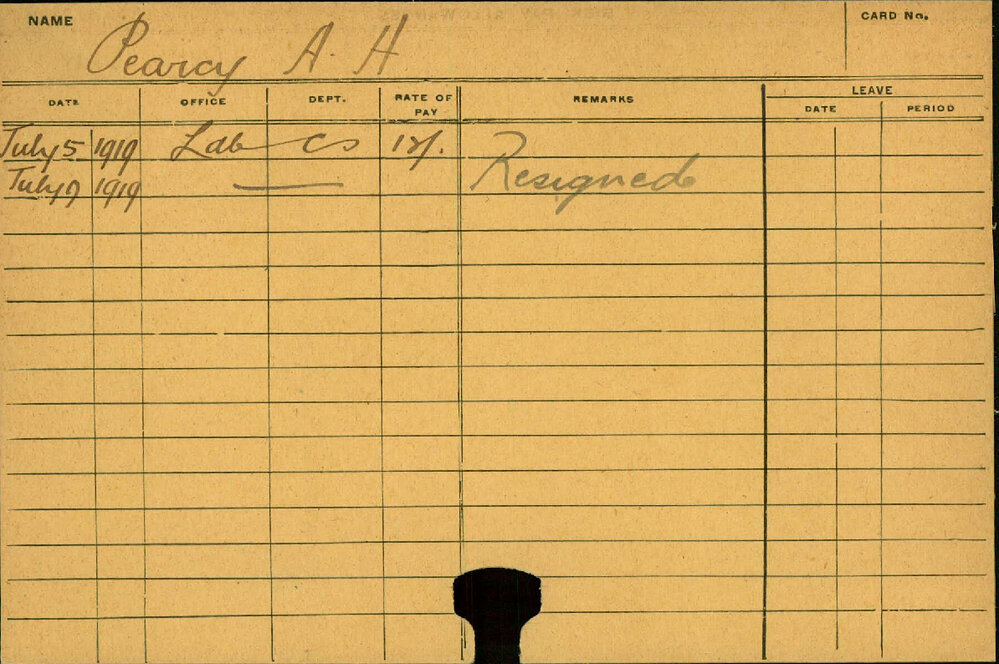 NAME Pearcy A. H CARD No.
DATE OFFICE DEPT. RATE OF PAY REMARKS LEAVE
DATE PERIOD
July 5 1919 Lab Cs 12/.
July 9 1919 — Resigned